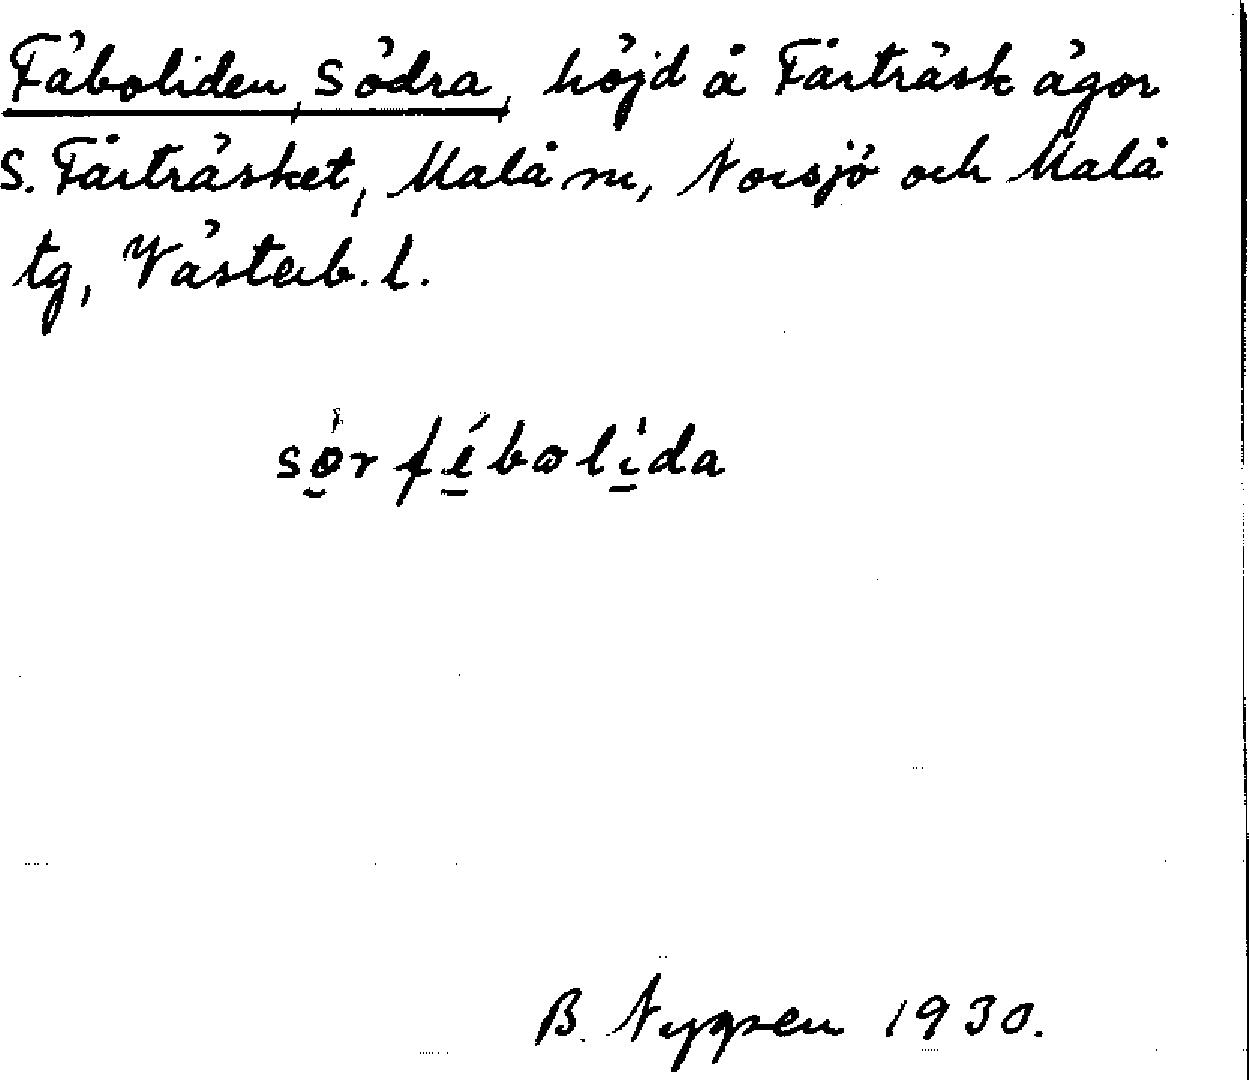 Fäboliden, Södra, höjd å Fårträsk ägor
S. Fårträsket, Malå sn, Norsjö och Malå
tg, Västerb. l.
sørfébolìda
B. Nygren 1930.